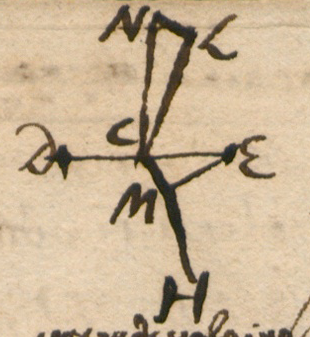 N L
C
D E
M
H